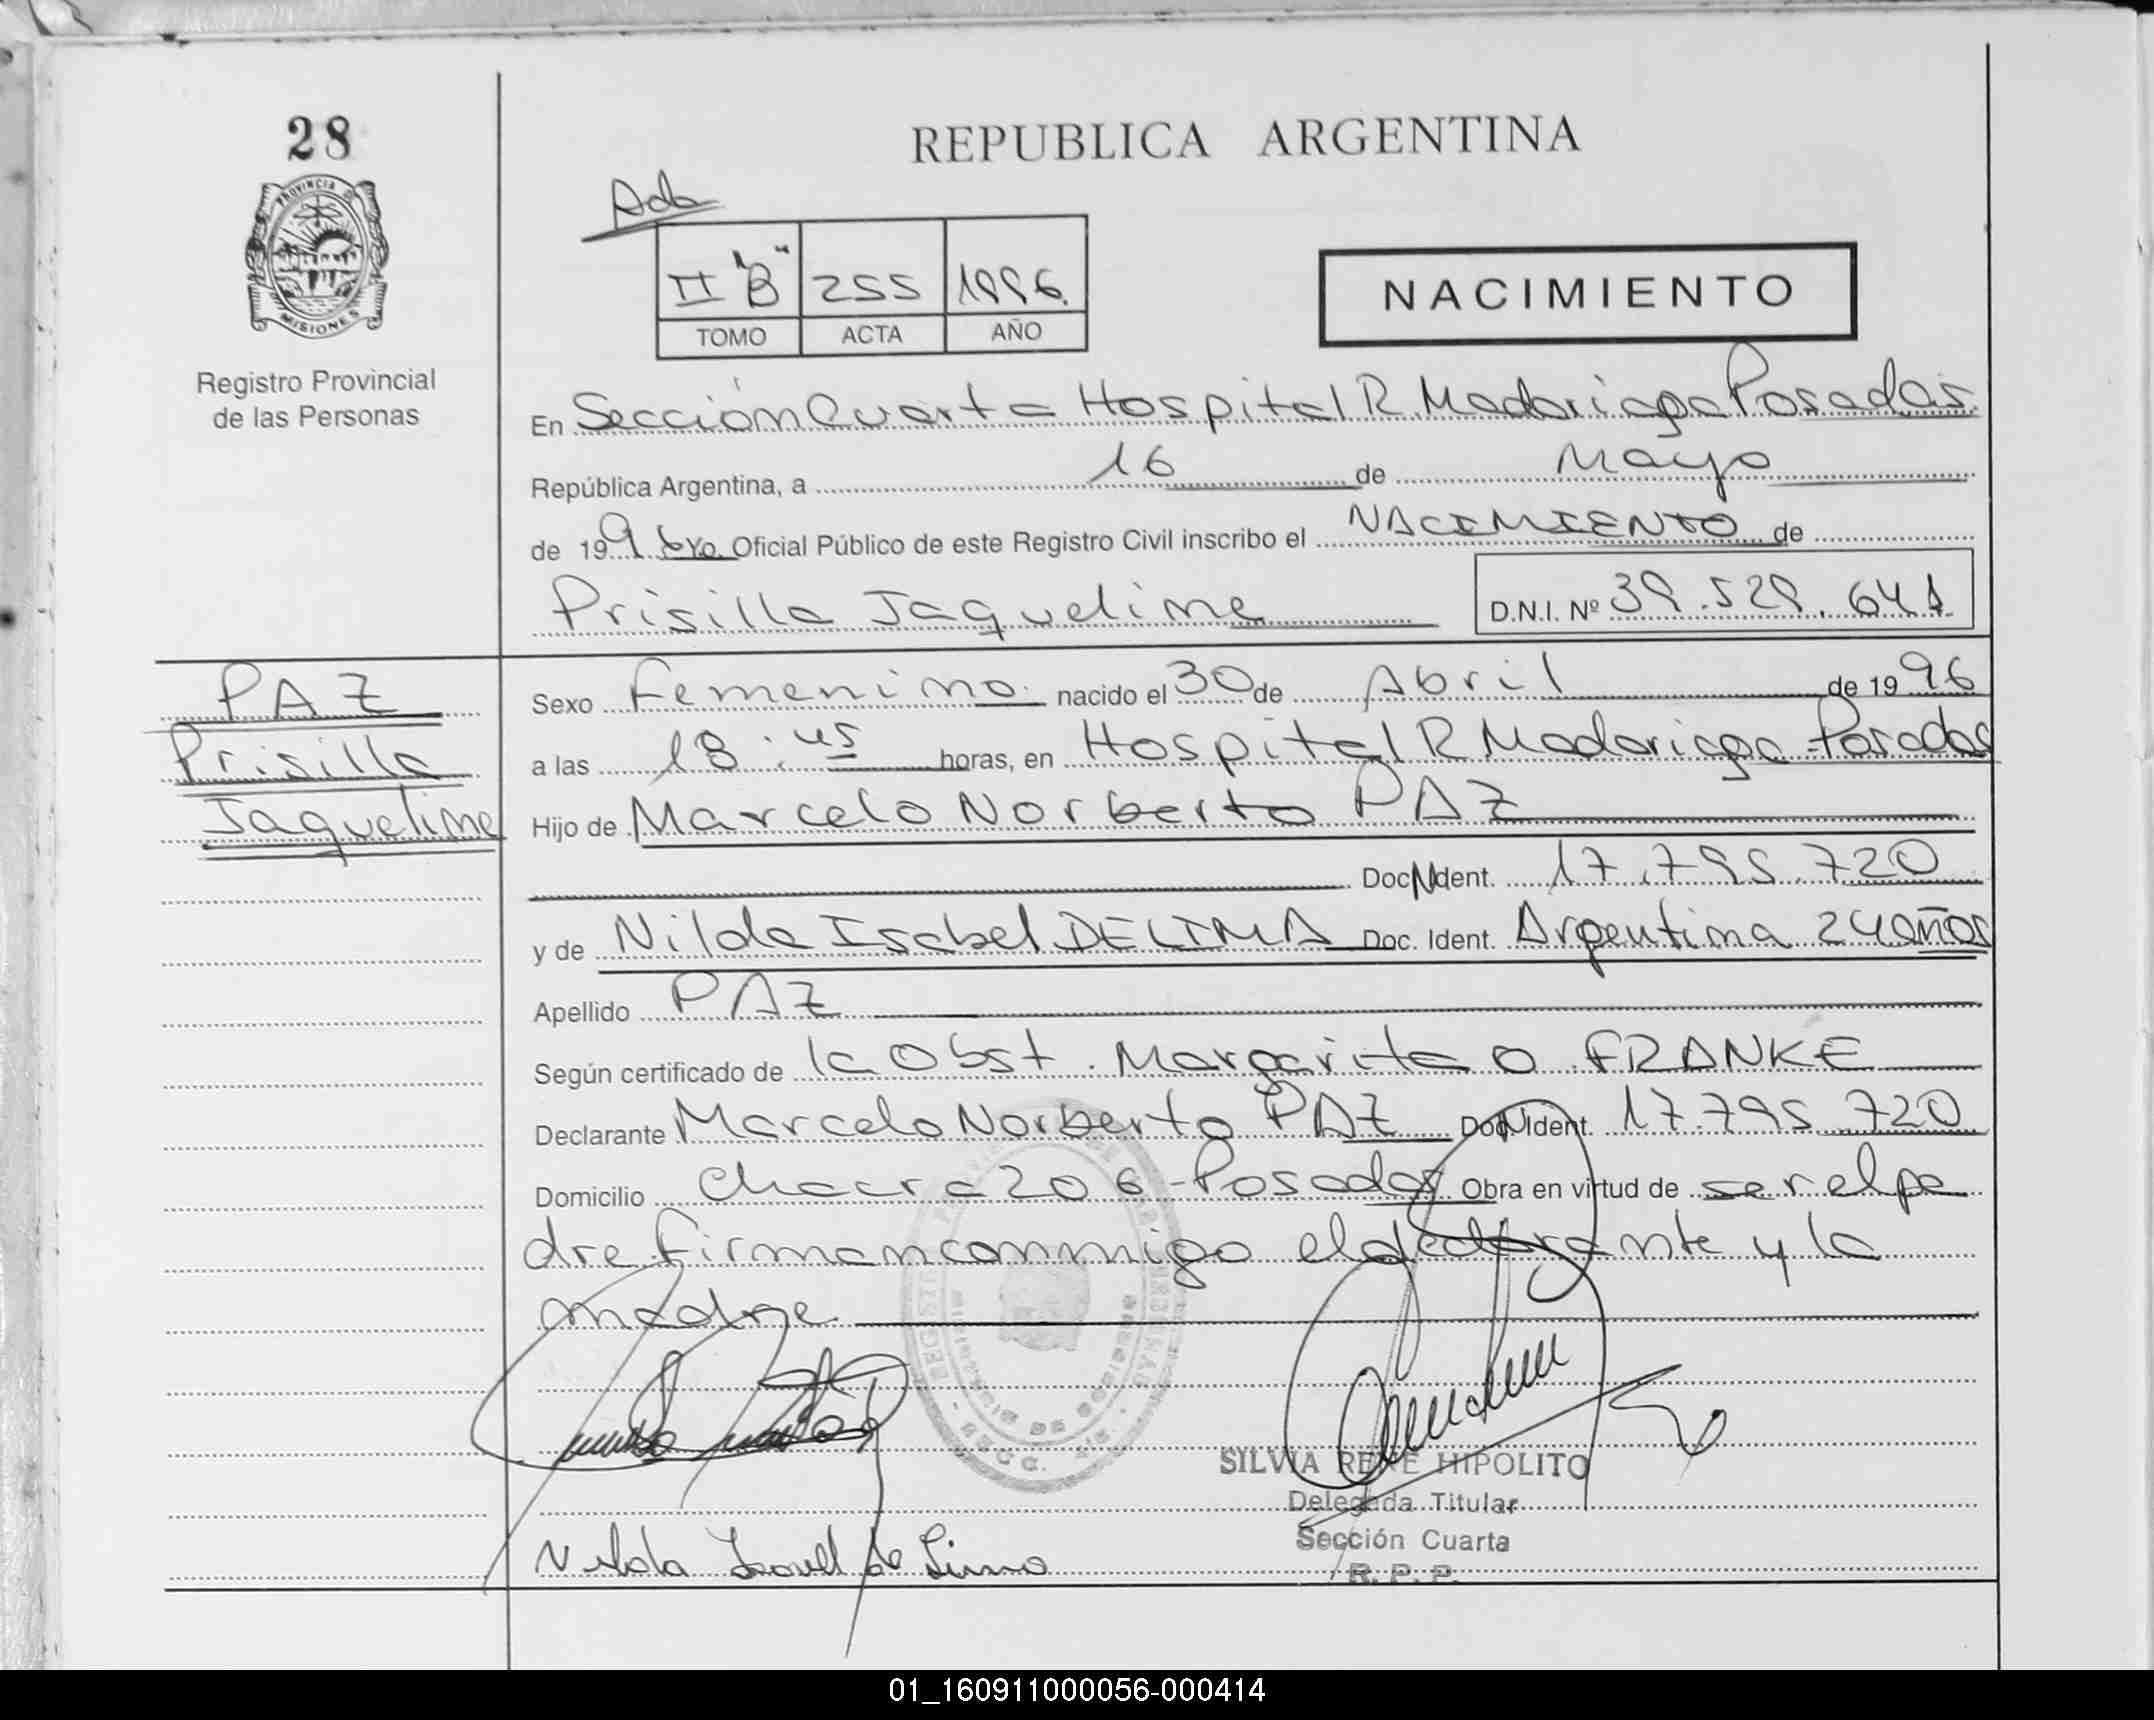 28
REPUBLICA ARGENTINA
PROVINCIA
MISIONES
Registro Provincial
de las Personas
II "B" 255 1996.
TOMO ACTA AÑO
NACIMIENTO
En Sección Cuarta Hospital R. Madariaga Posadas.
República Argentina, a 16 de Mayo
de 1996 yo Oficial Público de este Registro Civil inscribo el NACIMIENTO de
Prisilla Jaqueline D.N.I. Nº 39.529.641
PAZ
Prisilla
Jaqueline
Sexo Femenino. nacido el 30 de Abril de 1996
a las 18:45 horas, en Hospital R Madariaga-Posadas
Hijo de Marcelo Norberto PAZ
Doc. Ident. 17.795.720
y de Nilda Isabel DE LIMA Doc. Ident. Argentina 24 años
Apellido PAZ
Según certificado de la Obst. Margarita O. FRANKE
Declarante Marcelo Norberto PAZ Doc. Ident. 17.795.720
Domicilio Chacra 206-Posadas Obra en virtud de ser el pa
dre. firman conmigo el declarante y la
madre
SILVIA RENE HIPOLITO
Delegada Titular
Sección Cuarta
R. P. P.
Nilda Isabel de Lima
01_160911000056-000414